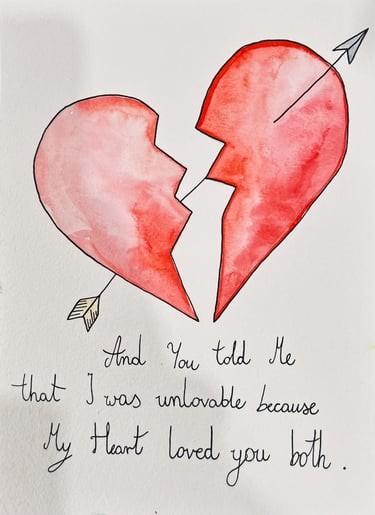 And You told Me
that I was unlovable because
My Heart loved you both.